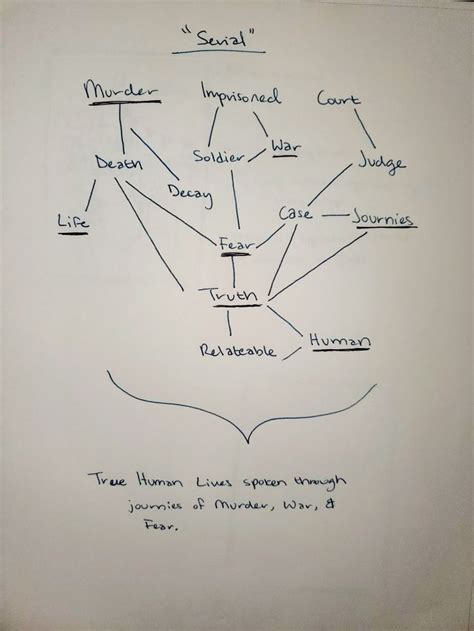 "Serial"
Murder Imprisoned Court
Death Soldier War Judge
Decay
Life Case Journies
Fear
Truth
Relateable Human
True Human Lives spoken through
journies of Murder, War, &
Fear.